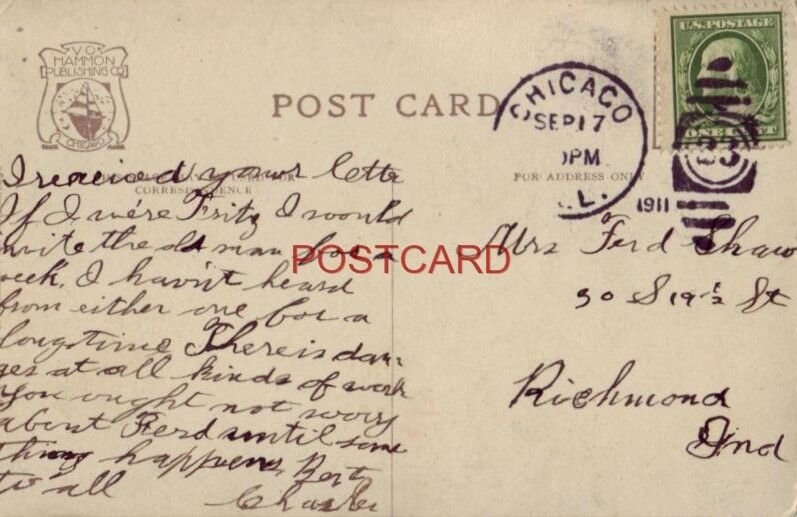 V.O.
HAMMON
PUBLISHING CO.
CHICAGO
TRADE MARK
POST CARD
U.S. POSTAGE
ONE CENT
CHICAGO
SEP 17
PM
ILL.
1911
23
CORRESPONDENCE
FOR ADDRESS ONLY
I received your lette
If I were Fritz I would
invite the old man for a
week. I havn't heard
from either one for a
long time There is dan
ges at all kinds of work
You ought not worry
about Ferd until some
thing happens, Best
to all
Charles
Mrs Ferd Shaw
30 S 19 ½ St
Richmond
Ind
POSTCARD